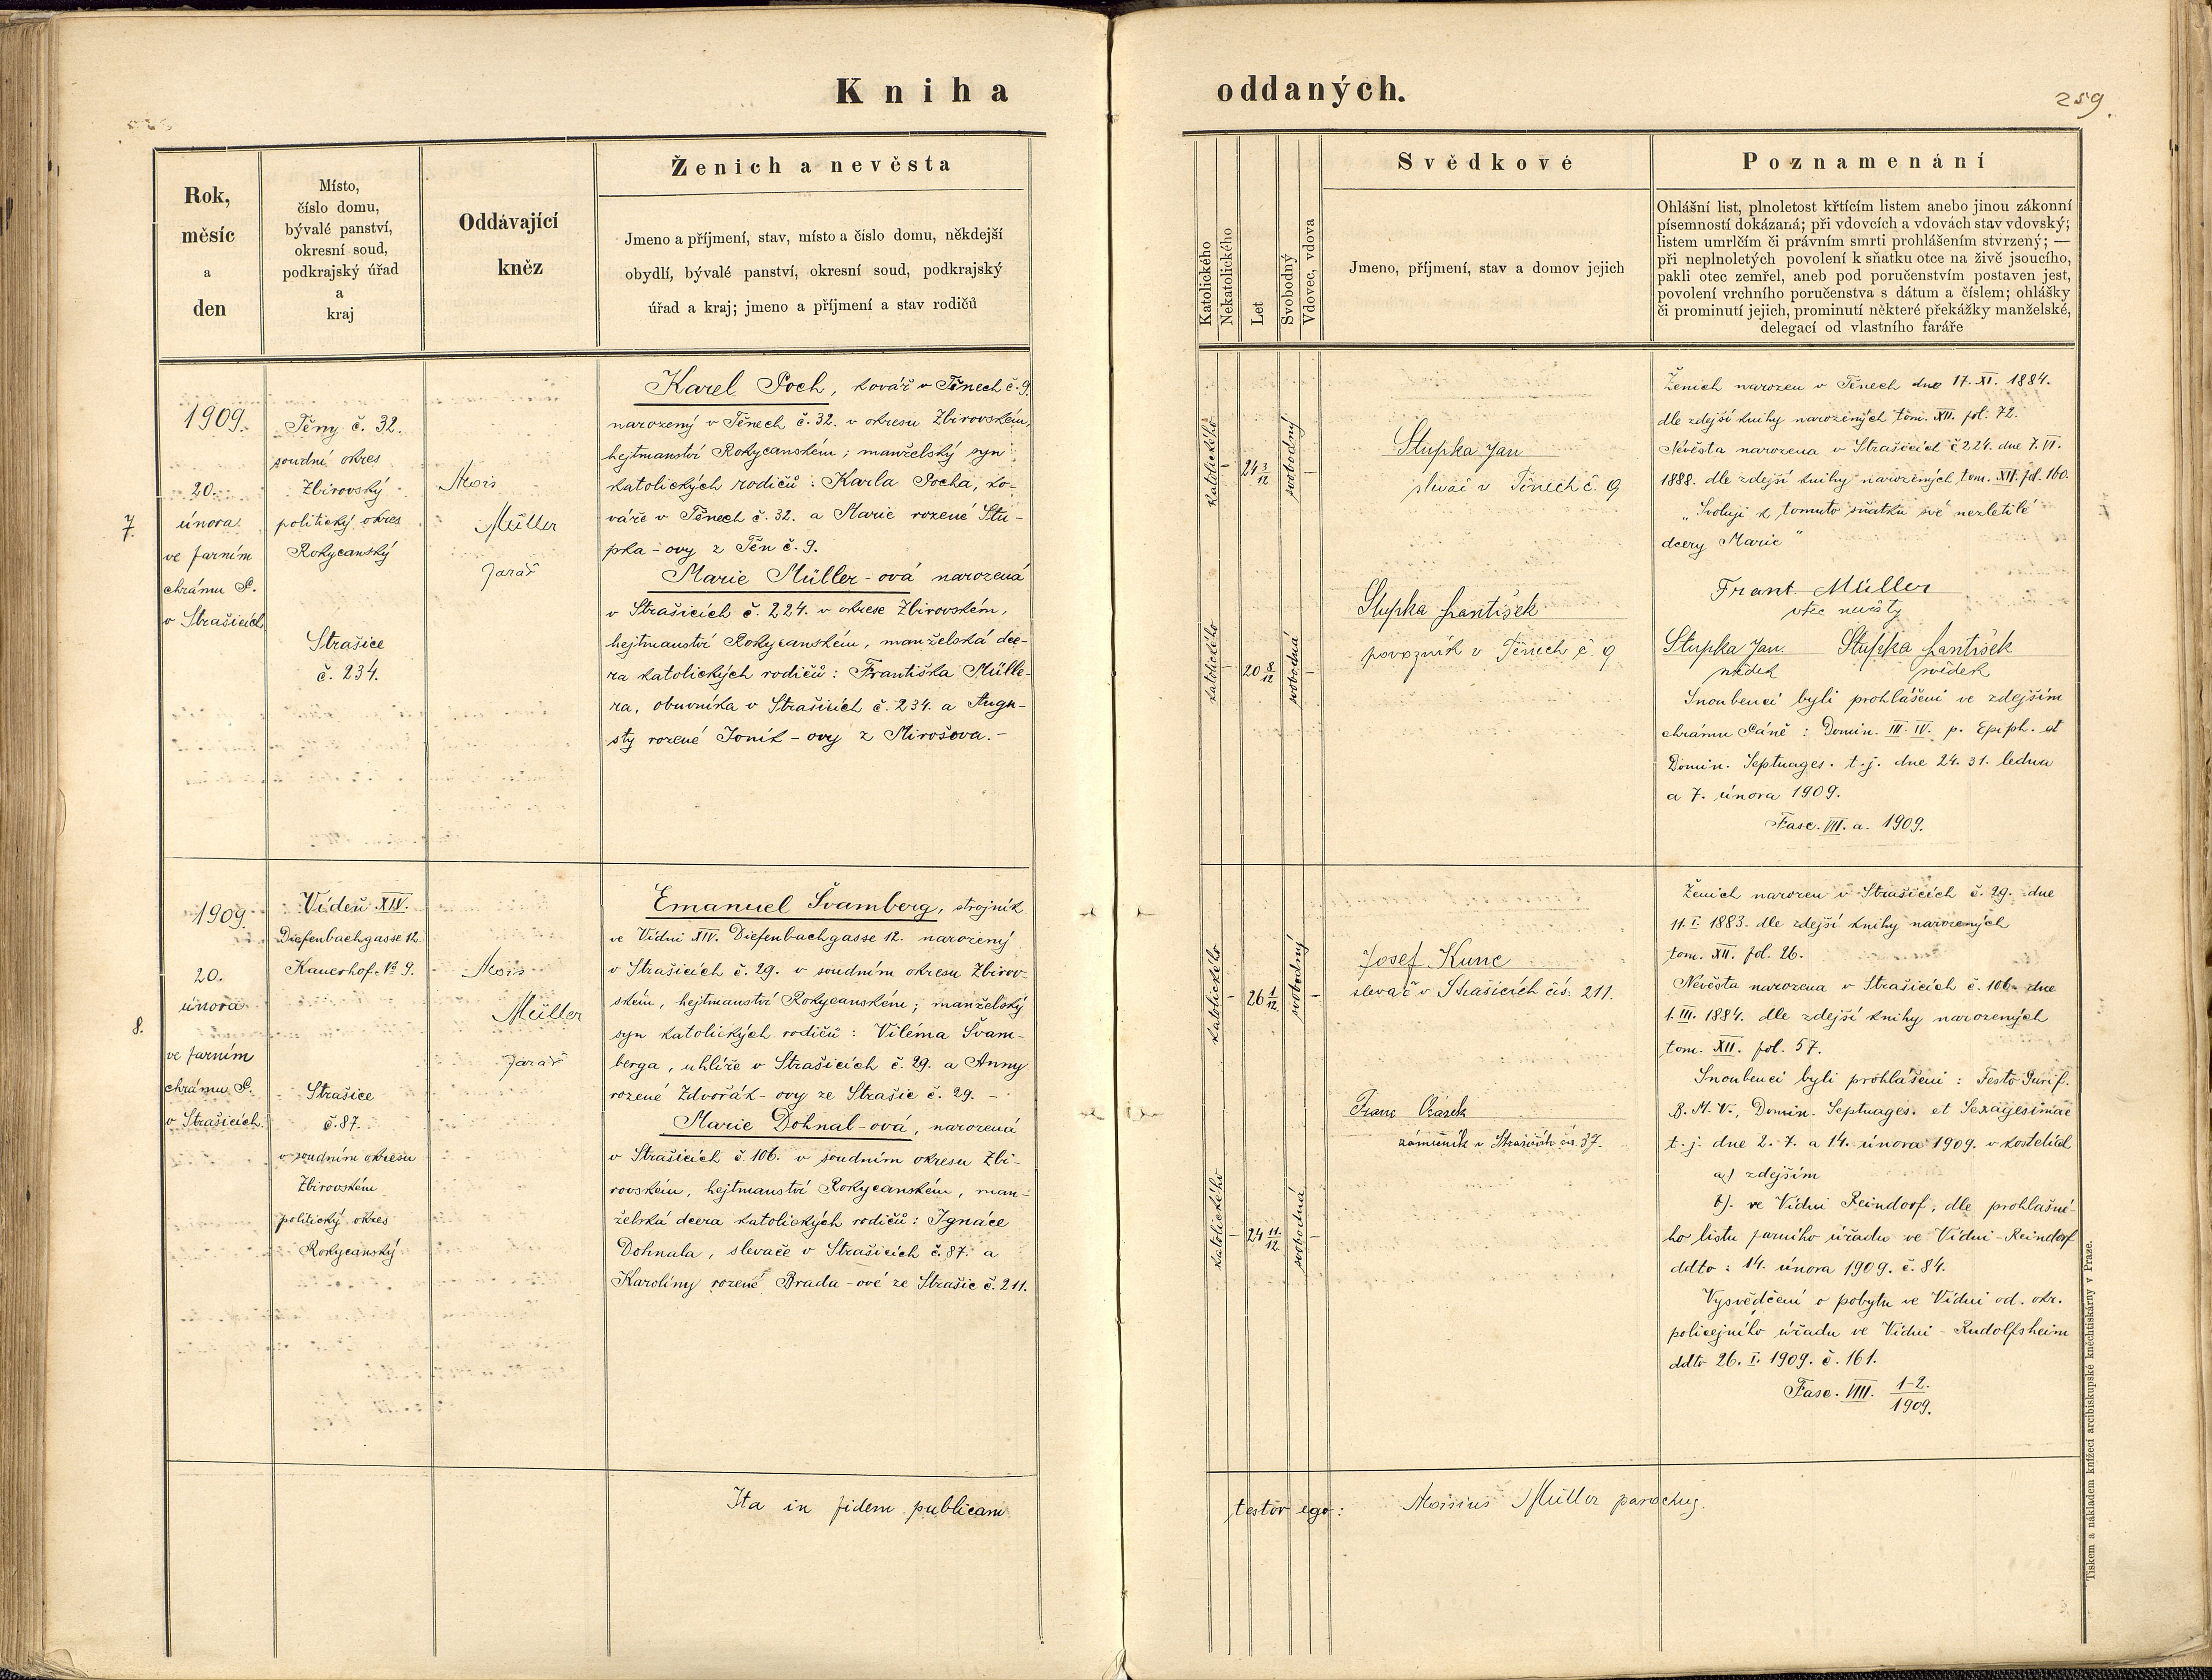 Kniha oddaných.
259.
Rok,
měsíc
a
den
Místo,
číslo domu,
bývalé panství,
okresní soud,
podkrajský úřad
a
kraj
Oddávající
kněz
Ženich a nevěsta
Jmeno a příjmení, stav, místo a číslo domu, někdejší
obydlí, bývalé panství, okresní soud, podkrajský
úřad a kraj; jmeno a příjmení a stav rodičů
Katolického
Nekatolického
Let
Svobodný
Vdovec, vdova
Svědkové
Jmeno, příjmení, stav a domov jejich
Poznamenání
Ohlášní list, plnoletost křtícím listem anebo jinou zákonní
písemností dokázaná; při vdovcích a vdovách stav vdovský;
listem umrlčím či právním smrti prohlášením stvrzený; —
při neplnoletých povolení k sňatku otce na živě jsoucího,
pakli otec zemřel, aneb pod poručenstvím postaven jest,
povolení vrchního poručenstva s dátum a číslem; ohlášky
či prominutí jejich, prominutí některé překážky manželské,
delegací od vlastního faráře
7.
1909.
20.
února
ve farním
chrámu P.
v Strašicích
Těny č. 32.
soudní okres
Zbirovský
politický okres
Rokycanský
Strašice
č. 234.
Alois
Müller
farář
Karel Poch, kovář v Těnech č. 9.
narozený v Těnech č. 32. v okresu Zbirovském,
hejtmanství Rokycanském; manželský syn
katolických rodičů: Karla Pocha, ko-
váře v Těnech č. 32. a Marie rozené Stu-
pka-ovy z Těn č. 9.
Marie Müller-ová narozená
v Strašicích č. 224. v okrese Zbirovském,
hejtmanství Rokycanském, manželská dce-
ra katolických rodičů: Františka Mülle-
ra, obuvníka v Strašicích č. 234. a Augu-
sty rozené Toník-ovy z Mirošova.-
katolického
-
24 3/12
svobodný
-
katolického
-
20 8/12
svobodná
-
Stupka Jan
slevač v Těnech č. 9
Stupka František
povozník v Těnech č. 9
Ženich narozen v Těnech dne 17. XI. 1884.
dle zdejší knihy narozených tom. XII. fol. 72.
Nevěsta narozena v Strašicích č 224. dne 7. VI.
1888. dle zdejší knihy narozených tom. XII. fol. 160.
„Svoluji k tomuto sňatku své nezletilé
dcery Marie"
Frant. Müller
otec nevěsty
Stupka Jan Stupka František
svědek svědek
Snoubenci byli prohlášeni ve zdejším
chrámu Páně: Domin. III. IV. p. Epiph. et
Domin. Septuages. t.j. dne 24. 31. ledna
a 7. února 1909.
Fasc. VII. a. 1909.
8.
1909.
20.
února
ve farním
chrámu P.
v Strašicích
Vídeň XIV.
Diefenbachgasse 12
Kauerhof № 9.
Strašice
č. 87.
v soudním okresu
Zbirovském
politický okres
Rokycanský
Alois
Müller
farář
Emanuel Švamberg, strojník
ve Vídni XIV. Diefenbachgasse 12. narozený
v Strašicích č. 29. v soudním okresu Zbirov-
ském, hejtmanství Rokycanském; manželský
syn katolických rodičů: Viléma Švam-
berga, uhlíře v Strašicích č. 29. a Anny
rozené Zdvořák-ovy ze Strašic č. 29. -
Marie Dohnal-ová, narozená
v Strašicích č. 106. v soudním okresu Zbi-
rovském, hejtmanství Rokycanském, man-
želská dcera katolických rodičů: Ignáce
Dohnala, slevače v Strašicích č. 87. a
Karolíny rozené Brada-ové ze Strašic č. 211.
katolického
-
26 1/12
svobodný
-
katolického
-
24 11/12
svobodná
-
Josef Kunc
slevač v Strašicích čís. 211.
Franc
zámečník v Strašicích čís. 37.
Ženich narozen v Strašicích č. 29. dne
11. I. 1883. dle zdejší knihy narozených
tom. XII. fol. 26.
Nevěsta narozena v Strašicích č. 106. dne
1. III. 1884. dle zdejší knihy narozených
tom. XII. fol. 57.
Snoubenci byli prohlášeni: Festo Purif.
B. M. V., Domin. Septuages. et Sexagesimae
t. j. dne 2. 7. a 14. února 1909. v kostelích
a) zdejším
b). ve Vídni Reindorf, dle prohlašní-
ho listu farního úřadu ve Vídni-Reindorf
ddto: 14. února 1909. č. 84.
Vysvědčení o pobytu ve Vídni od. okr.
policejního úřadu ve Vídni - Rudolfsheim
ddto 26. I. 1909. č. 161.
Fasc. VIII. 1-2./1909.
Ita in fidem publicam testor ego: Aloisius Müller parochus.
Tiskem a nákladem knížecí arcibiskupské kněhtiskárny v Praze.